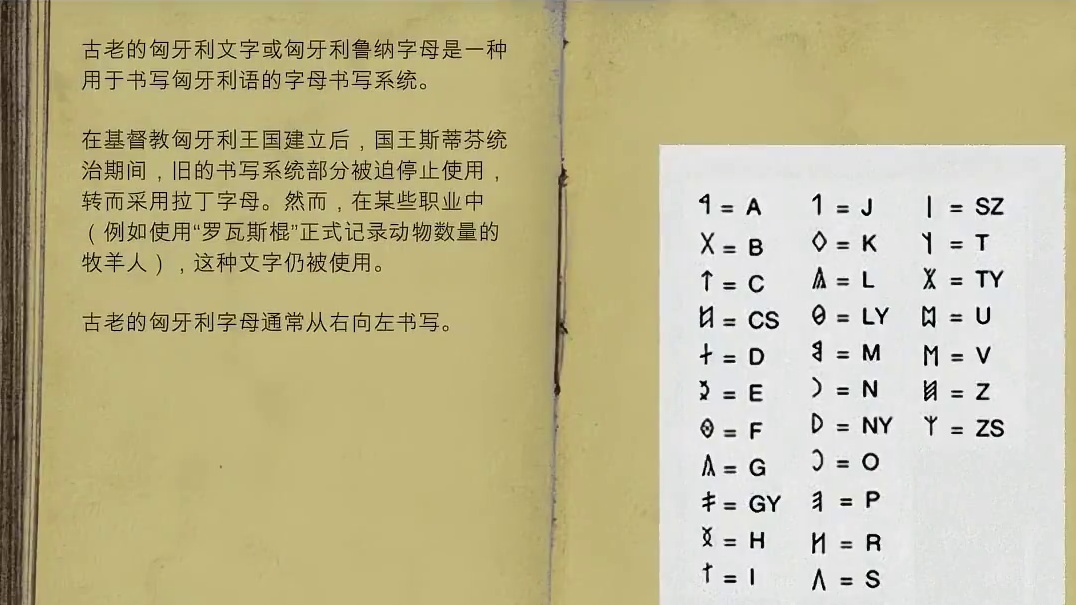 古老的匈牙利文字或匈牙利鲁纳字母是一种
用于书写匈牙利语的字母书写系统。
在基督教匈牙利王国建立后，国王斯蒂芬统
治期间，旧的书写系统部分被迫停止使用，
转而采用拉丁字母。然而，在某些职业中
（例如使用“罗瓦斯棍”正式记录动物数量的
牧羊人），这种文字仍被使用。
古老的匈牙利字母通常从右向左书写。
= A
= B
= C
= CS
= D
= E
= F
= G
= GY
= H
= I
= J
= K
= L
= LY
= M
= N
= NY
= O
= P
= R
= S
= SZ
= T
= TY
= U
= V
= Z
= ZS